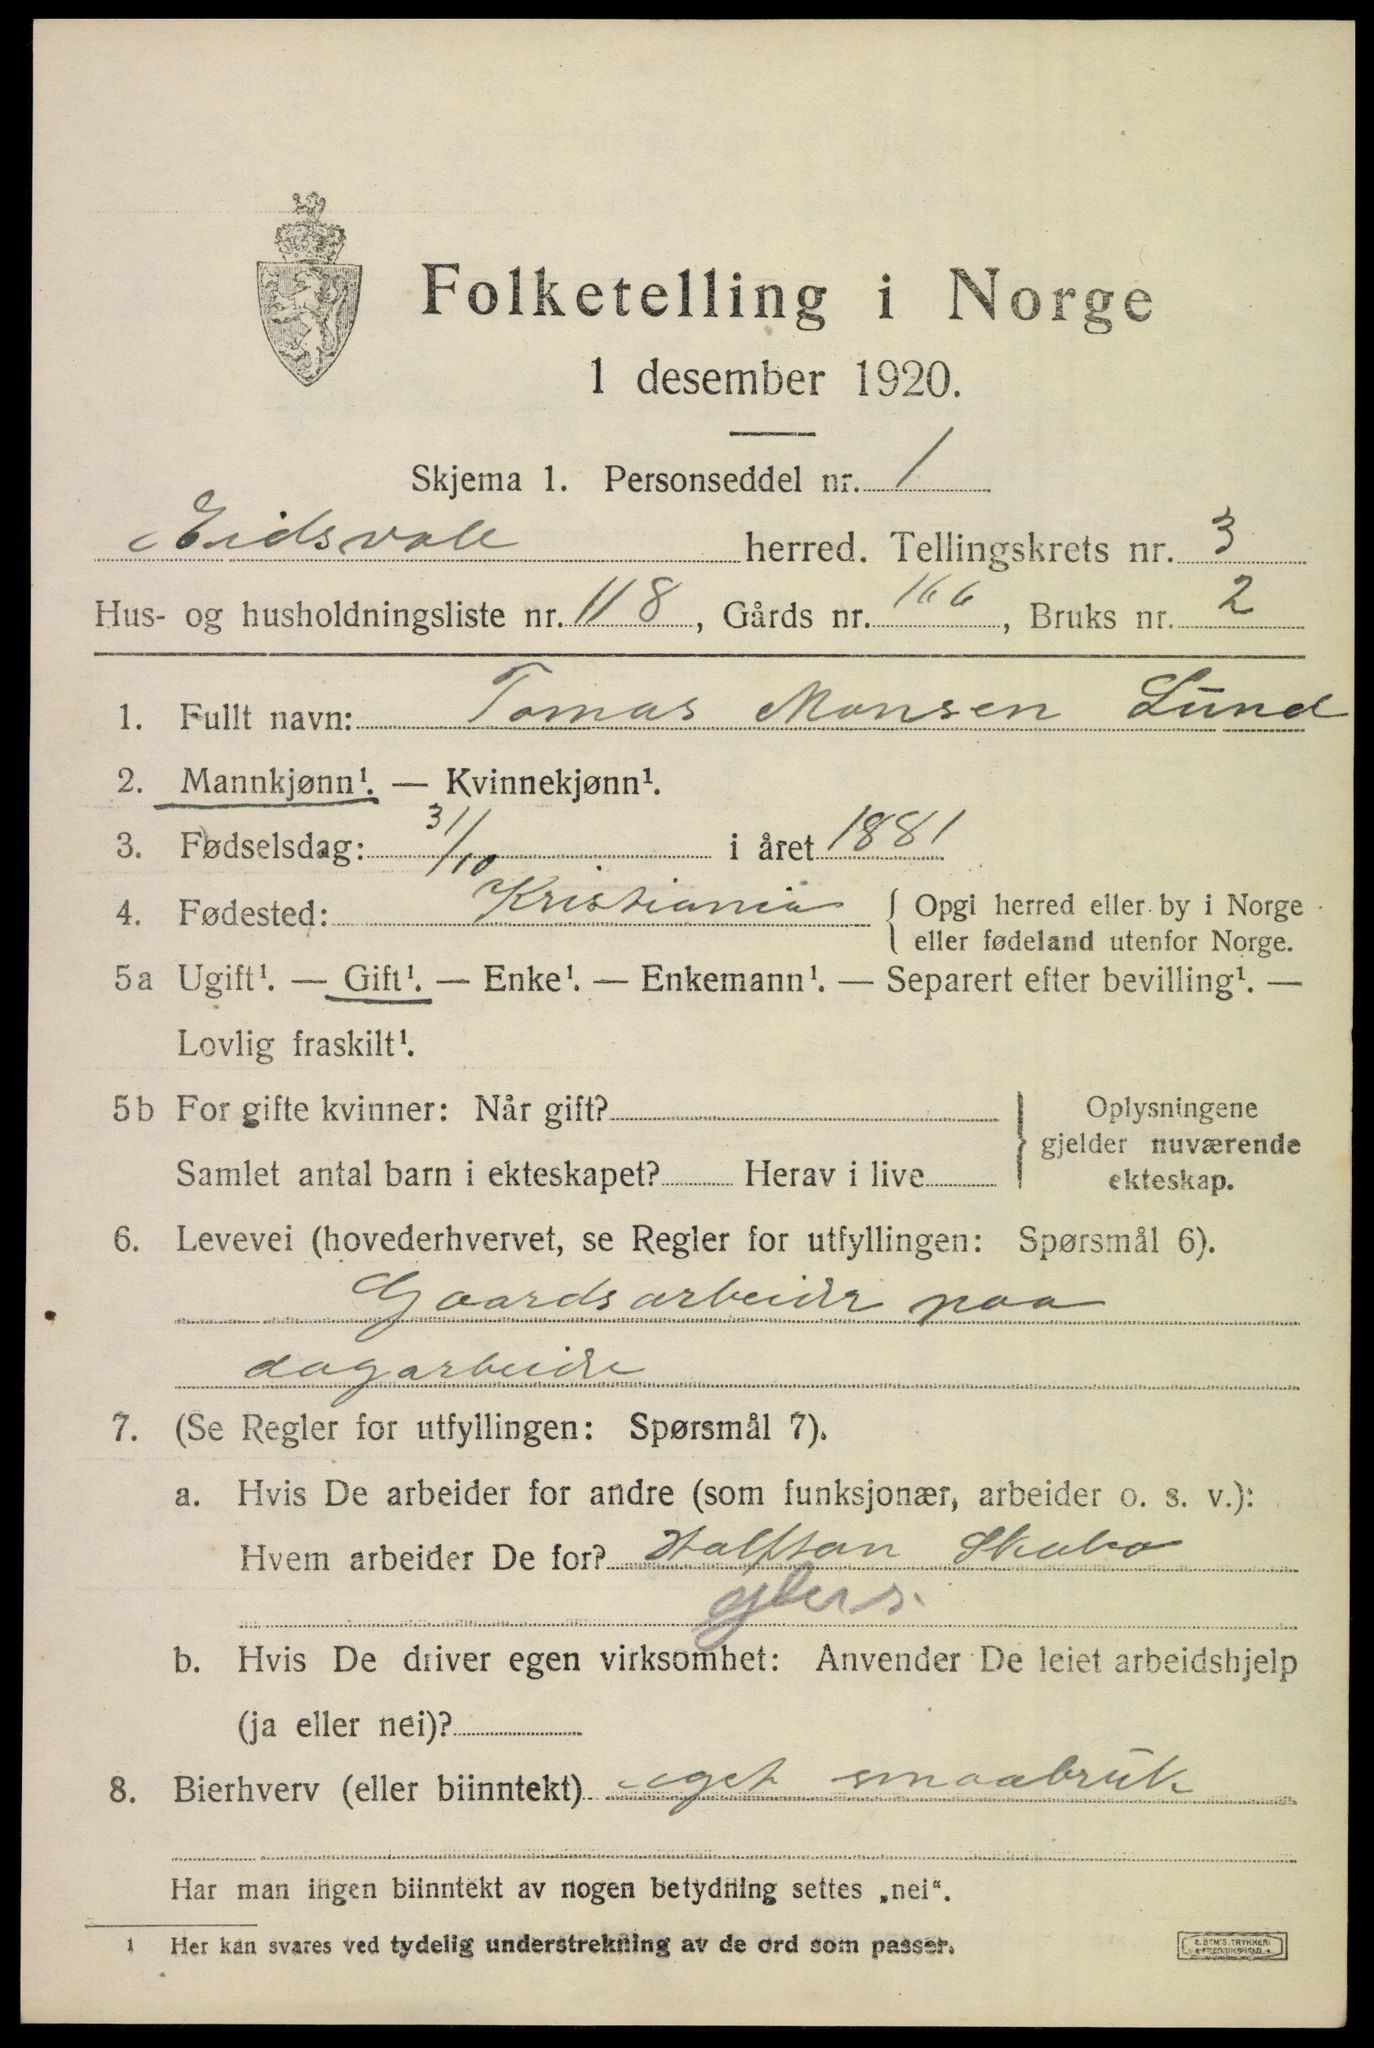 Folketelling i Norge
1 desember 1920.
Skjema 1. Personseddel nr. 1
Eidsvoll herred. Tellingskrets nr. 3
Hus- og husholdningsliste nr. 118, Gårds nr. 166, Bruks nr. 2
1. Fullt navn: Tomas Monsen Lund
2. Mannkjønn¹. — Kvinnekjønn¹.
3. Fødselsdag: 31/10 i året 1881
4. Fødested: Kristiania { Opgi herred eller by i Norge
eller fødeland utenfor Norge.
5a Ugift¹. — Gift¹. — Enke¹. — Enkemann¹. — Separert efter bevilling¹. —
Lovlig fraskilt¹.
5b For gifte kvinner: Når gift? } Oplysningene
gjelder nuværende
Samlet antal barn i ekteskapet? Herav i live
ekteskap.
6. Levevei (hovederhvervet, se Regler for utfyllingen: Spørsmål 6).
Gaardsarbeide paa
dagarbeide
7. (Se Regler for utfyllingen: Spørsmål 7).
a. Hvis De arbeider for andre (som funksjonær, arbeider o. s. v.):
Hvem arbeider De for? Halftan
b. Hvis De driver egen virksomhet: Anvender De leiet arbeidshjelp
(ja eller nei)?
8. Bierhverv (eller biinntekt) eget smaabruk
Har man ingen biinntekt av nogen betydning settes „nei".
¹ Her kan svares ved tydelig understrekning av de ord som passer.
E. SEM'S TRYKKERI
FREDRIKSHALD